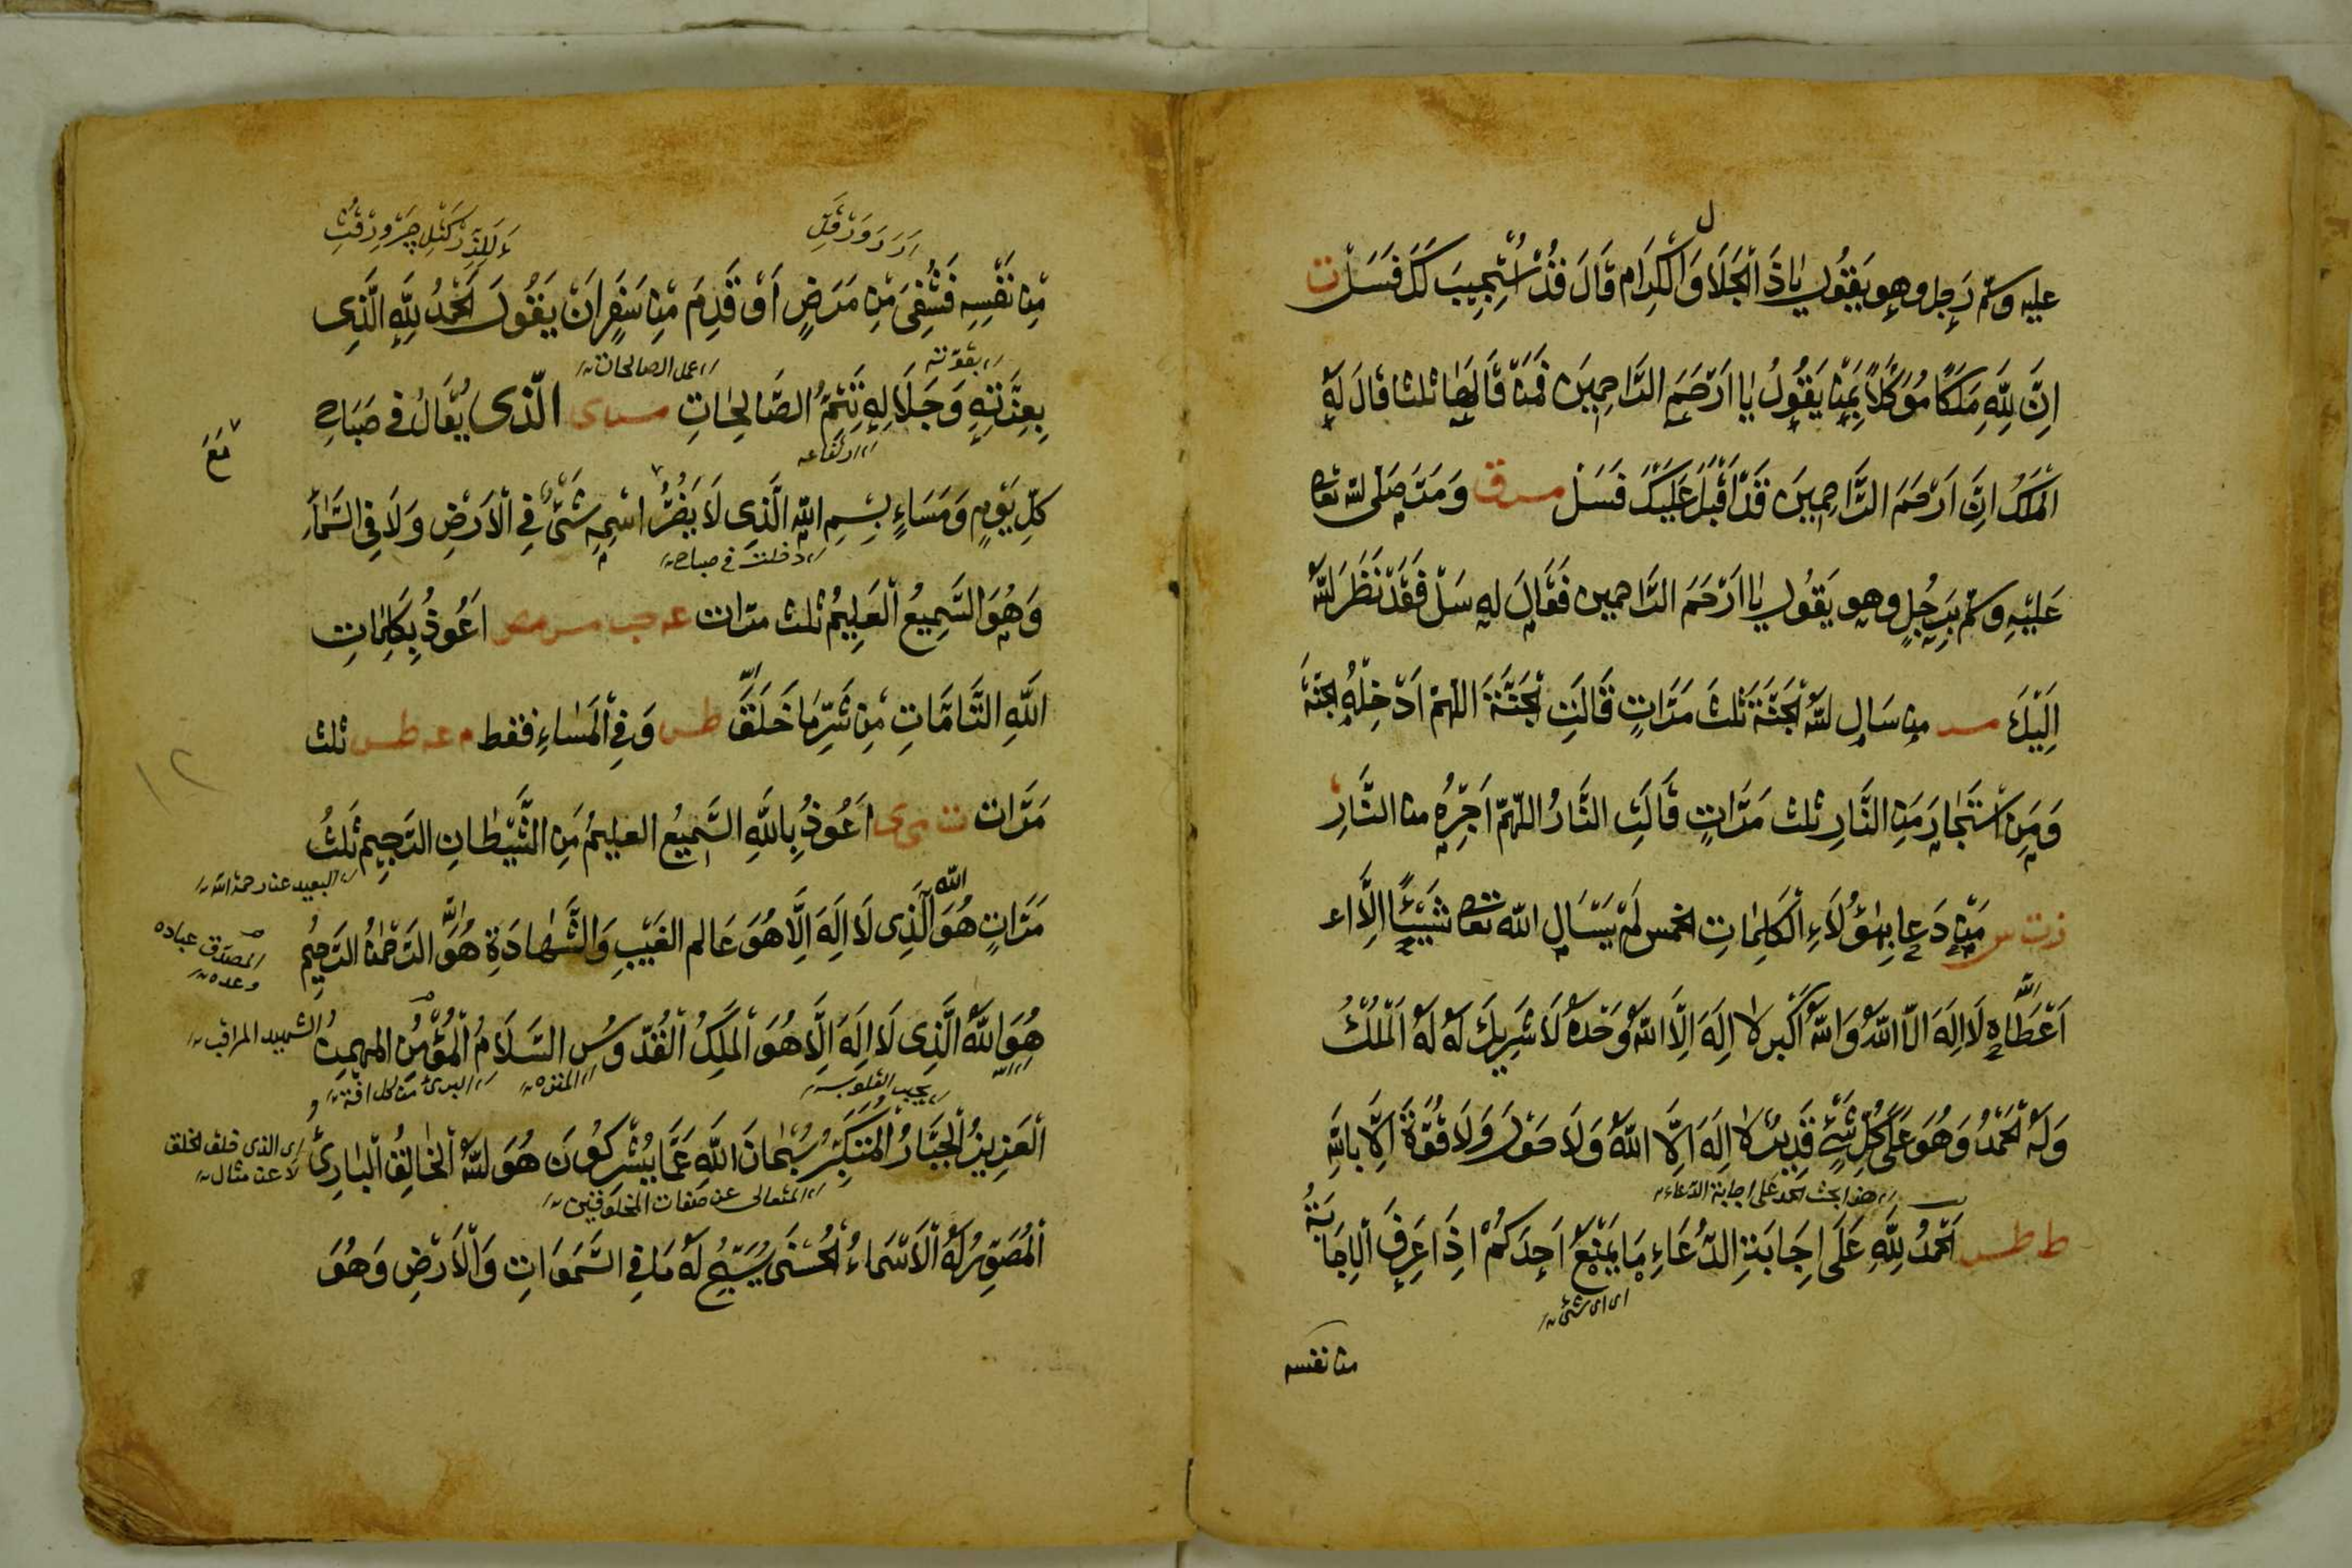 عليه وسلم رَجل وهو يَقُول يا ذَ الْجَلَا وَالْكرَام قَالَ قَدُ اسْتُجِيبَ لَكَ فَسَلْ ت
ل
اِنَّ لِلّهِ مَلَكًا مُوَكَّلاً بِمَنْ يَقُولُ يَا اَرْحَمَ الرَّاحِمِينَ فَمَنْ قَالَهَا ثلث قَالَ لَهٗ
الْمَلَكُ اِنَّ اَرْحَمَ الرَّاحِمِينَ قَدْ اَقْبَلَ عَلَيْكَ فَسَلْ مس ق وَمَرَّ صَلى الله تعا
عَلَيْهِ وسلم بِرَجُلٍ وهو يَقُول يَا اَرْحَمَ الرَّاحمين فَقَالَ له سَلْ فَقَدْ نَظَرَ اللهُ
اِلَيْكَ مس من سَال اللهَ الْجَنَّةَ ثَلثَ مَرَّاتٍ قَالَتِ الْجَنَّةُ اللهمّ اَدْخِلْهُ الجنَّةَ
وَمَنِ اسْتَجَارَ مِنَ النَّارِ ثلث مَرَّاتٍ قَالَتِ النَّارُ اللّهمّ اَجِرْهُ من النَّارِ
ت س مَنْ دَعا بِهؤُلَاءِ الْكَلِمَاتِ الخمس لَمْ يَسْال الله تعا شَيْئًا اِلَّا اع
الله
اَعْطَاه لَا اِلَهَ اِلّا اللهُ وَاللهُ اَكْبر لا اِلَهَ اِلَّا اللهُ وَحْدهُ لَا شَرِيكَ لَهُ لَهُ الْمُلْكُ
وَلَهُ الْحَمْدُ وَهُوَ عَلَى كُلِّ شَيْءٍ قَدِيرٌ لا اِلَهَ اِلَّا اللهُ وَلَا حَوْلَ وَلَا قُوَّةَ اِلَّا بِاللهِ
هذا بحث الحمد على اجابة الدّعاء
ط طس اَلحَمْدُ لِلّهِ عَلَى اِجَابَةِ الدُّعَاءِ مَا يَمْنَعُ اَحَدَكُمْ اِذَا عَرِفَ الْاِجَابَةَ
اى اى شئ
من نفسه
مِنْ نَفْسِهِ فَشُفِىَ مِنْ مَرَضٍ اَوْ قَدِمَ مِنْ سَفَرٍ اَنْ يَقُولَ الْحَمْدُ لِلّهِ الَّذِى
بقوّته
عمل الصالحات
بِعِزَّتِهِ وَجَلَالِهِ تَتِمُّ الصَّالِحَاتِ مس ى الّذى يُقَالُ فى صَبَاحِ
كلِّ يَوْمٍ وَمَسَاءٍ بِسْمِ اللهِ الَّذِى لَا يَضُرُّ اسْمِهِ شَئٌ فِى الْاَرْضِ وَلَا فِى السَّمَاءِ
مَعَ
دخلت فى صباح
وَهُوَ السَّمِيعُ الْعَلِيمُ ثلث مرّات عه حب مس مص اَعُوذُ بِكَلِمَاتِ
اللهِ التَّامَّاتِ مِنْ شَرِّ مَا خَلَقَ طس وَفِى الْمَسَاءِ فقط م عه طس ثلث
١٢
مَرَّات ت ى اَعُوذُ بِاللهِ السَّمِيعُ العليمُ مِنَ الشَّيْطَانِ الرَّجِيمِ ثَلثُ
البعيد عن رحمة الله
الله
مَرَّاتٍ هُوَ الَّذِى لَا اِلَهَ اِلَّا هُوَ عَالم الغَيْبِ وَالشَّهَادَةِ هُوَ الرَّحْمنُ الرَّحِيمُ
المصدّق عباده
وعده
هُوَ اللهُ الَّذِى لَا اِلَهَ اِلَّا هُوَ الْمَلِكُ الْقُدّوسُ السَّلَامُ الْمُؤْمِنُ المهيمن
الشهيد المراقب
يجيب القلوب
المنزه
البرئ من كل افة
الْعَزِيزُ الْجَبَّارُ الْمُتَكَبِّرُ سُبْحَانَ اللهِ عَمَّا يُشْرِكُونَ هُوَ اللهُ الْخَالِقُ الْبَارِئُ
اى الذى خلق الخلق
لا عن مثال
المتعالى عن صفات المخلوقين
الْمُصَوِّرُ لَهُ الْاَسْمَاءُ الْحُسْنَى يُسَبِّحُ لَهُ مَا فِى السَّمَوَاتِ وَالْاَرْضِ وَهُوَ